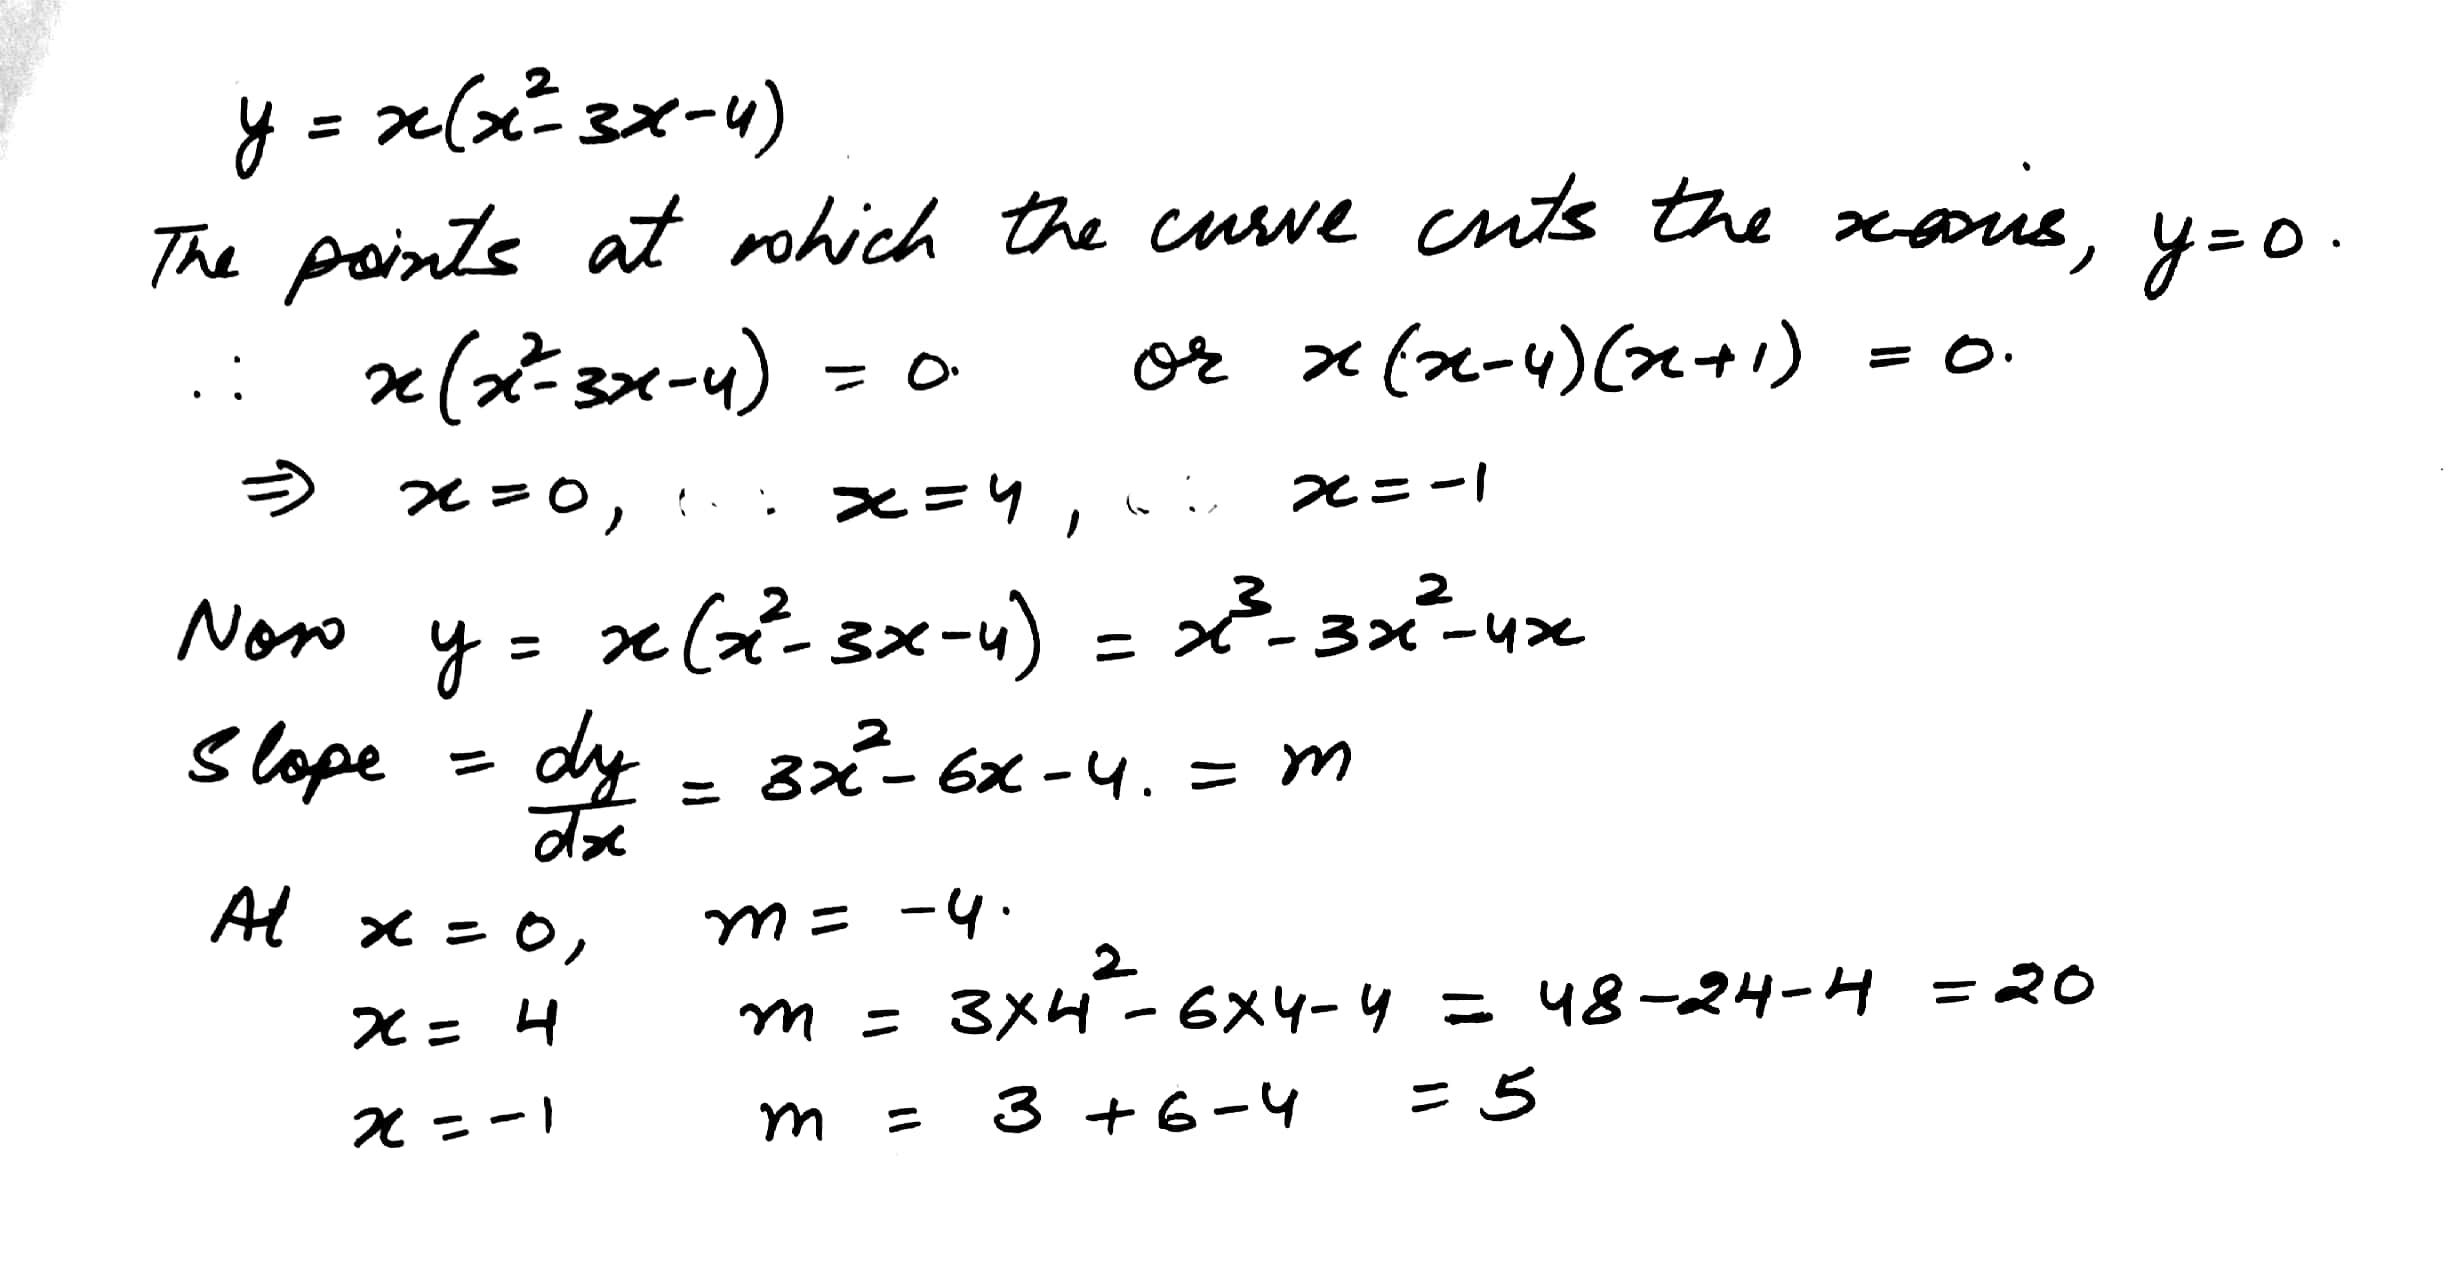 y = x(x²-3x-4)
The points at which the curve cuts the x axis, y=0.
∴ x(x²-3x-4) = 0. or x(x-4)(x+1) = 0.
⇒ x=0, x=4, x=-1
Now y = x(x²-3x-4) = x³-3x²-4x
Slope = dy/dx = 3x²-6x-4. = m
At x=0, m= -4.
x=4 m = 3×4²-6×4-4 = 48-24-4 =20
x=-1 m = 3+6-4 =5